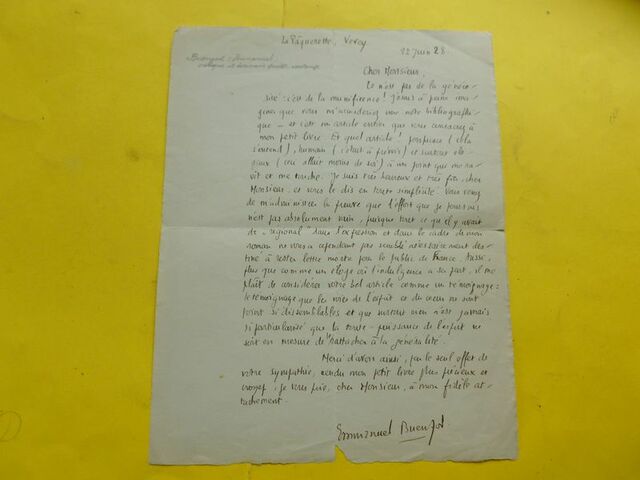 La Pâquerette, Vevey
22 Juin 28
Buenzod Emmanuel,
Cher Monsieur,
Ce n'est pas de la généro-
sité : c'est de la munificence ! J'osais à peine ima-
giner que vous m'accorderiez une note bibliographi-
que — et c'est un article entier que vous consacrez à
mon petit livre. Et quel article ! (cela
s'entend), humain (c'était à prévoir) et surtout élo-
gieux (ceci allait moins de soi) à un point que me ra-
vit et me touche. Je suis très heureux et très fier, cher
Monsieur, et vous le dis en toute simplicité. Vous venez
de m'administrer la preuve que l'effort que je poursuis
n'est pas absolument vain, puisque tout ce qu'il y avait
de "régional" dans l'expression et dans le cadre de mon
roman ne vous a cependant pas semblé nécessairement des-
tiné à rester lettre morte pour le public de France. Aussi,
plus que comme un éloge où l'indulgence a sa part, il me
plaît de considérer votre bel article comme un témoignage :
le témoignage que les voies de l'esprit et du cœur ne sont
point si dissemblables et que surtout rien n'est jamais
si particularisé que la toute-puissance de l'esprit ne
soit en mesure de rattacher à la généralité.
Merci d'avoir ainsi, par le seul effet de
votre sympathie, rendu mon petit livre plus précieux et
croyez, je vous prie, cher Monsieur, à mon fidèle at-
tachement.
Emmanuel Buenzod.